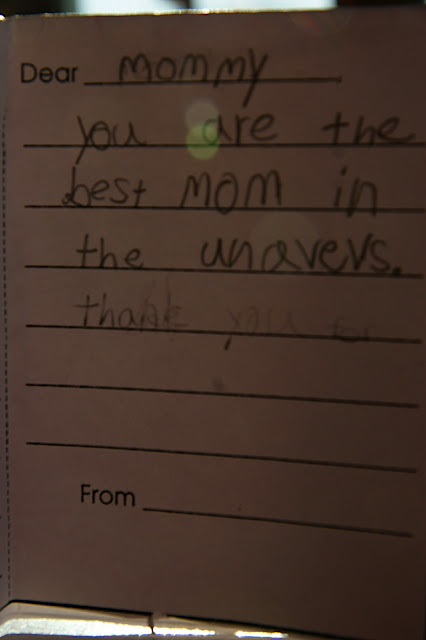 Dear mommy
you are the
best MOM in
the unavevs.
thank you for
From